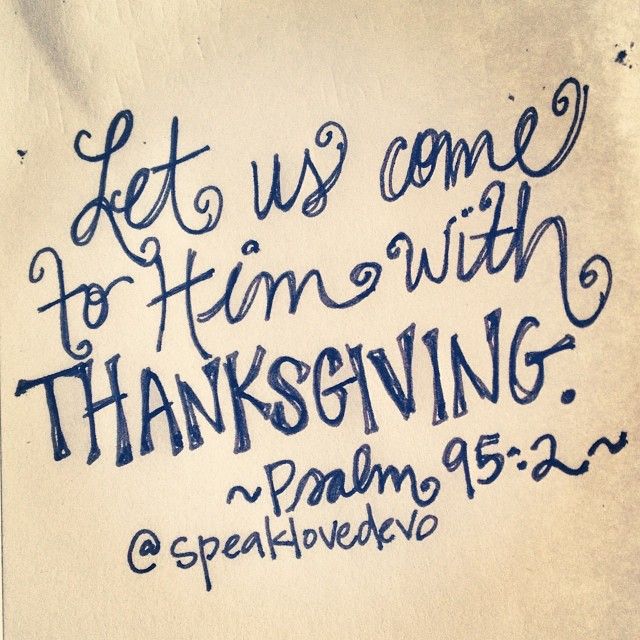 Let us come
to Him with
THANKSGIVING.
~Psalm 95:2~
@speaklovedevo